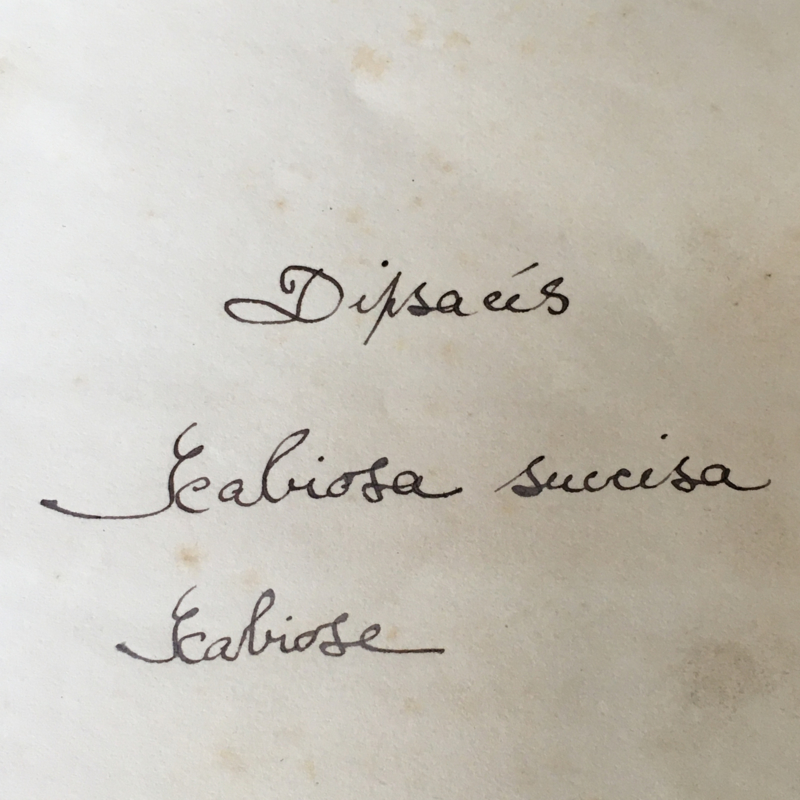 Dipsacés
Scabiosa succisa
Scabiose